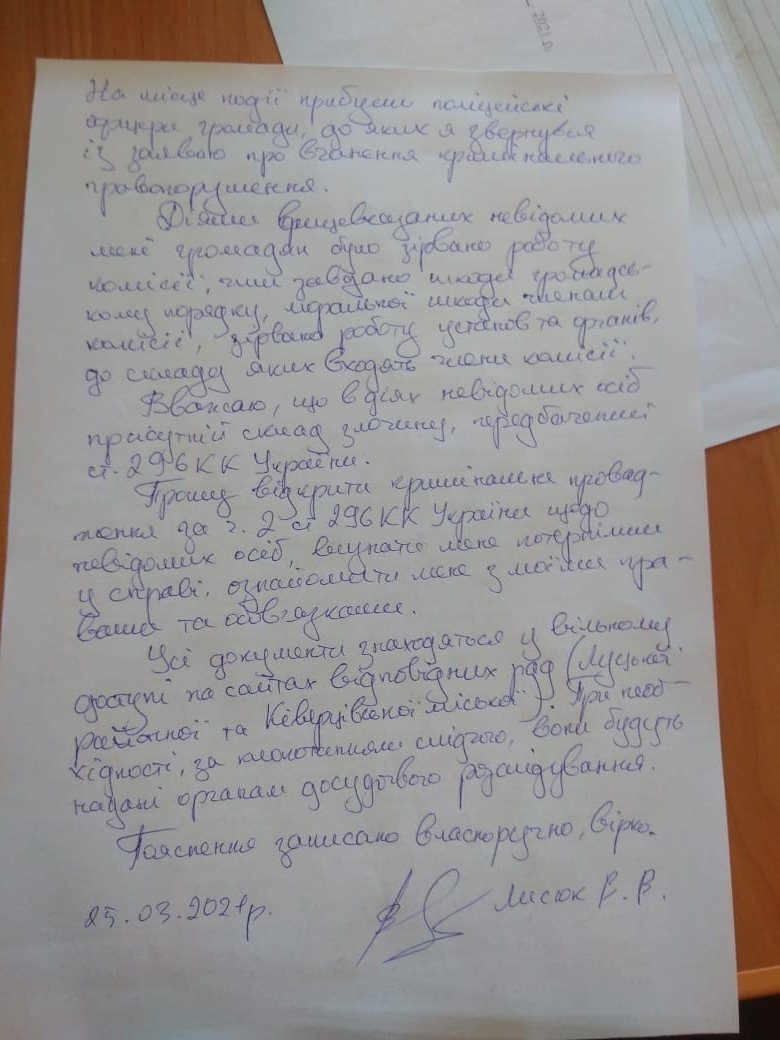 2021 р.
На місце події прибули поліцейські
офіцери громади, до яких я звернувся
із заявою про вчинення кримінального
правопорушення.
Діями вищевказаних невідомих
мені громадян було зірвано роботу
комісії, чим завдано шкоди громадсь-
кому порядку, моральної шкоди членам
комісії, зірвано роботу установ та органів,
до складу яких входять члени комісії.
Вважаю, що в діях невідомих осіб
присутній склад злочину, передбачений
ст. 296 КК України.
Прошу відкрити кримінальне провад-
ження за ч. 2 ст 296 КК України щодо
невідомих осіб, визнати мене потерпілим
у справі, ознайомити мене з моїми пра-
вами та обов'язками.
Усі документи знаходяться у вільному
доступі на сайтах відповідних рад (Луцької
районної та Ківерцівської міської). При необ-
хідності, за клопотанням слідчого, вони будуть
надані органам досудового розслідування.
Пояснення записано власноручно, вірно.
25.03.2021р.
Лисюк В. В.